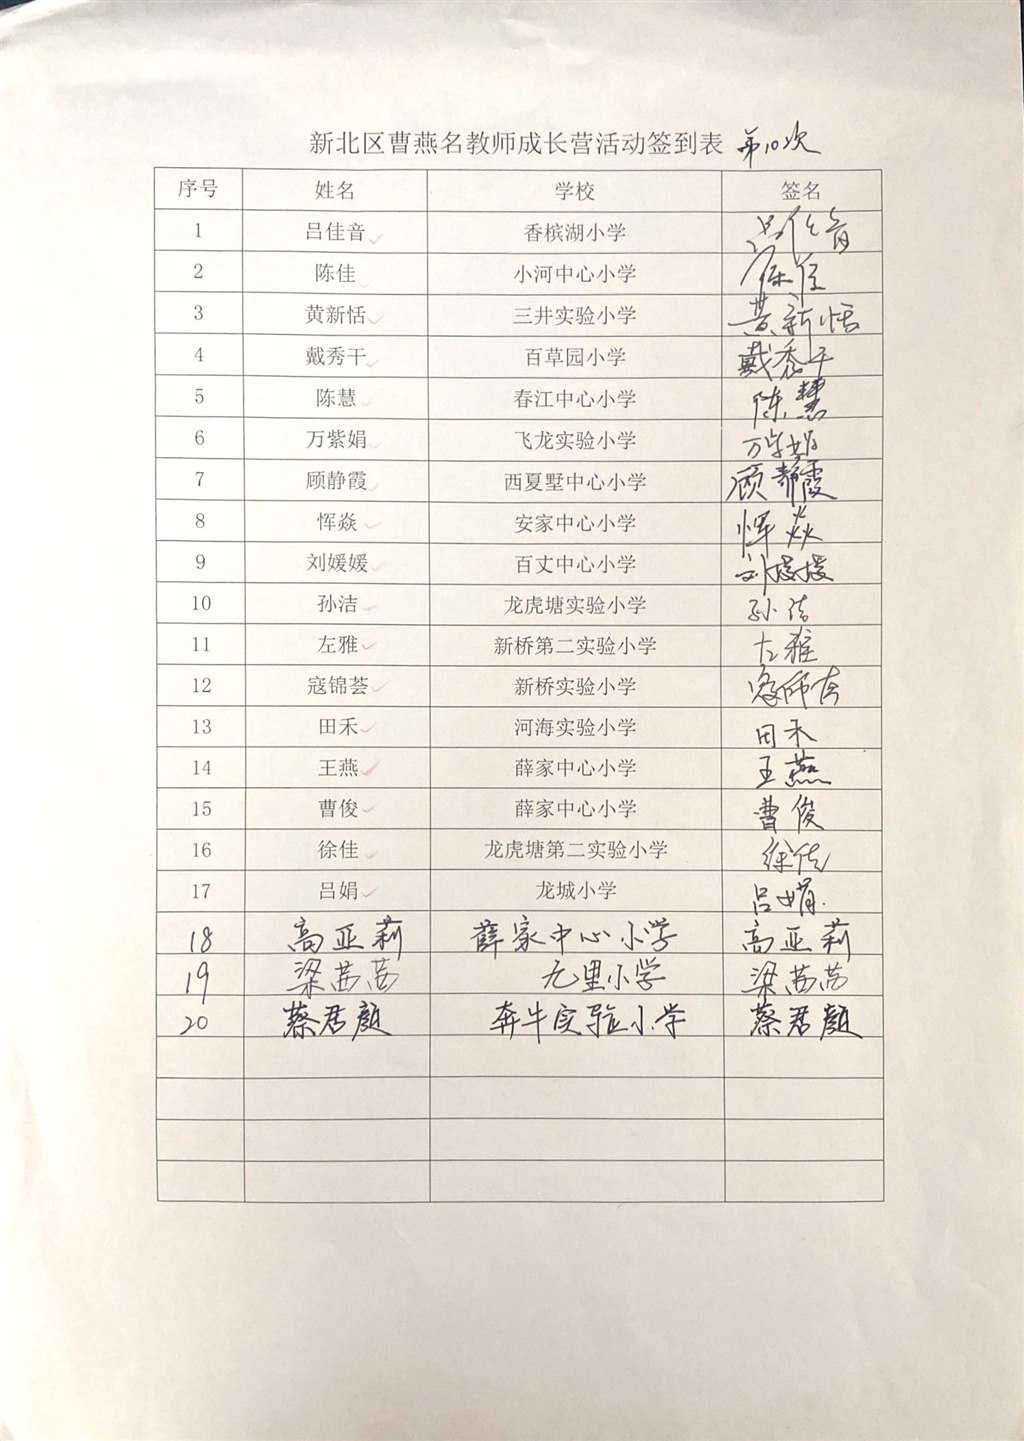 新北区曹燕名教师成长营活动签到表 第10次
序号 姓名 学校 签名
1 吕佳音 香槟湖小学 吕佳音
2 陈佳 小河中心小学 陈佳
3 黄新恬 三井实验小学 黄新恬
4 戴秀干 百草园小学 戴秀干
5 陈慧 春江中心小学 陈慧
6 万紫娟 飞龙实验小学 万紫娟
7 顾静霞 西夏墅中心小学 顾静霞
8 恽焱 安家中心小学 恽焱
9 刘媛媛 百丈中心小学 刘媛媛
10 孙洁 龙虎塘实验小学 孙洁
11 左雅 新桥第二实验小学 左雅
12 寇锦荟 新桥实验小学 寇锦荟
13 田禾 河海实验小学 田禾
14 王燕 薛家中心小学 王燕
15 曹俊 薛家中心小学 曹俊
16 徐佳 龙虎塘第二实验小学 徐佳
17 吕娟 龙城小学 吕娟
18 高亚莉 薛家中心小学 高亚莉
19 梁茜茜 九里小学 梁茜茜
20 蔡君颜 奔牛实验小学 蔡君颜